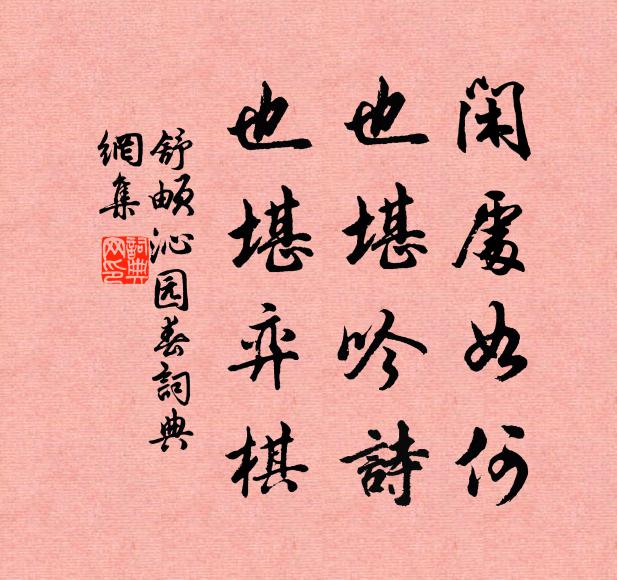 閑處如何
也堪吟詩
也堪弈棋
舒頔沁园春詞典
網集
詞典
网印